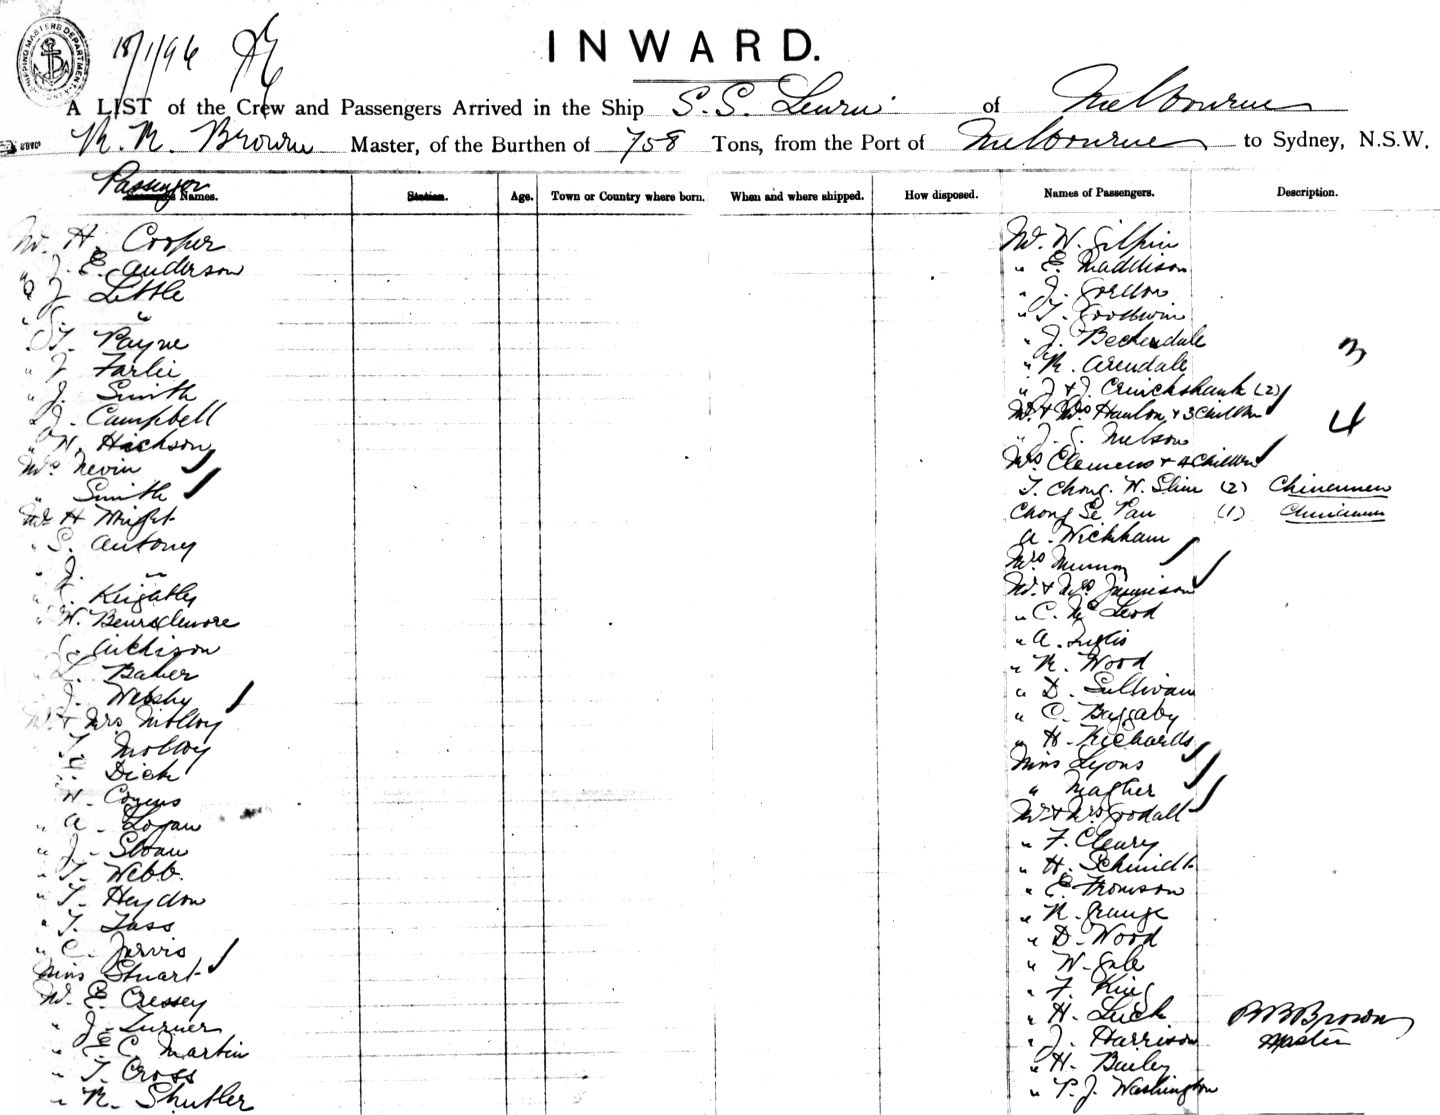 SHIPPING MASTERS DEPARTMENT
18/1/96
INWARD.
A LIST of the Crew and Passengers Arrived in the Ship S.S. of Melbourne
R. R. Brown Master, of the Burthen of 758 Tons, from the Port of Melbourne to Sydney, N.S.W.
Passenger Names. Station. Age. Town or Country where born. When and where shipped. How disposed. Names of Passengers. Description.
Mr. H. Cooper
" J. E. Anderson
" J. Little
" "
T. Payne
" J Farlie
" J. Smith
J. Campbell
" H. Hickson
Mrs Nevin
" Smith
Mr H Wright
" S. Antony
" J. "
Keigatly
" W. Beardsmore
Aitchison
L. Baker
J. Webshy
Mr. & Mrs. Molloy
T. Molloy
Dick
W. Cozens
" A. Logan
" J. Sloan
" T. Webb.
" T. Heydon
" T. Tass
" C. Jarvis
Miss Stuart
Mr. E. Cressey
" J. Turner
" E. C. Martin
" T. Cross
" R. Shutler
Mr. W. Gilpin
" E. Maddison
" J. Gordon
" T. Goodwin
" J. Beckendale
" R. Arendale
3
" J & J. Cruickshank (2)
Mr. & Mrs Hanlon & 3 Children
4
" J. S. Nelson
Mrs Clemens & 4 Children
T. Chong. W. Slim (2) Chinamen
Chong Se Pan (1) Chinaman
A. Wickham
Mrs Murray
Mr. & Mrs. Jamison
" C. McLeod
" A. Inglis
" R. Wood
" D. Sullivan
" C. Baggaby
" H. Richards
Miss Lyons
" Magher
Mr & Mrs Goodall
" F. Cleary
" H. Schmidt
" E. Thomson
" R. Grange
" D. Wood
" W. Gale
" F. King
" H. Luck
R R Brown
" J. Harrison
Master
" H. Bailey
" P. J. Washington